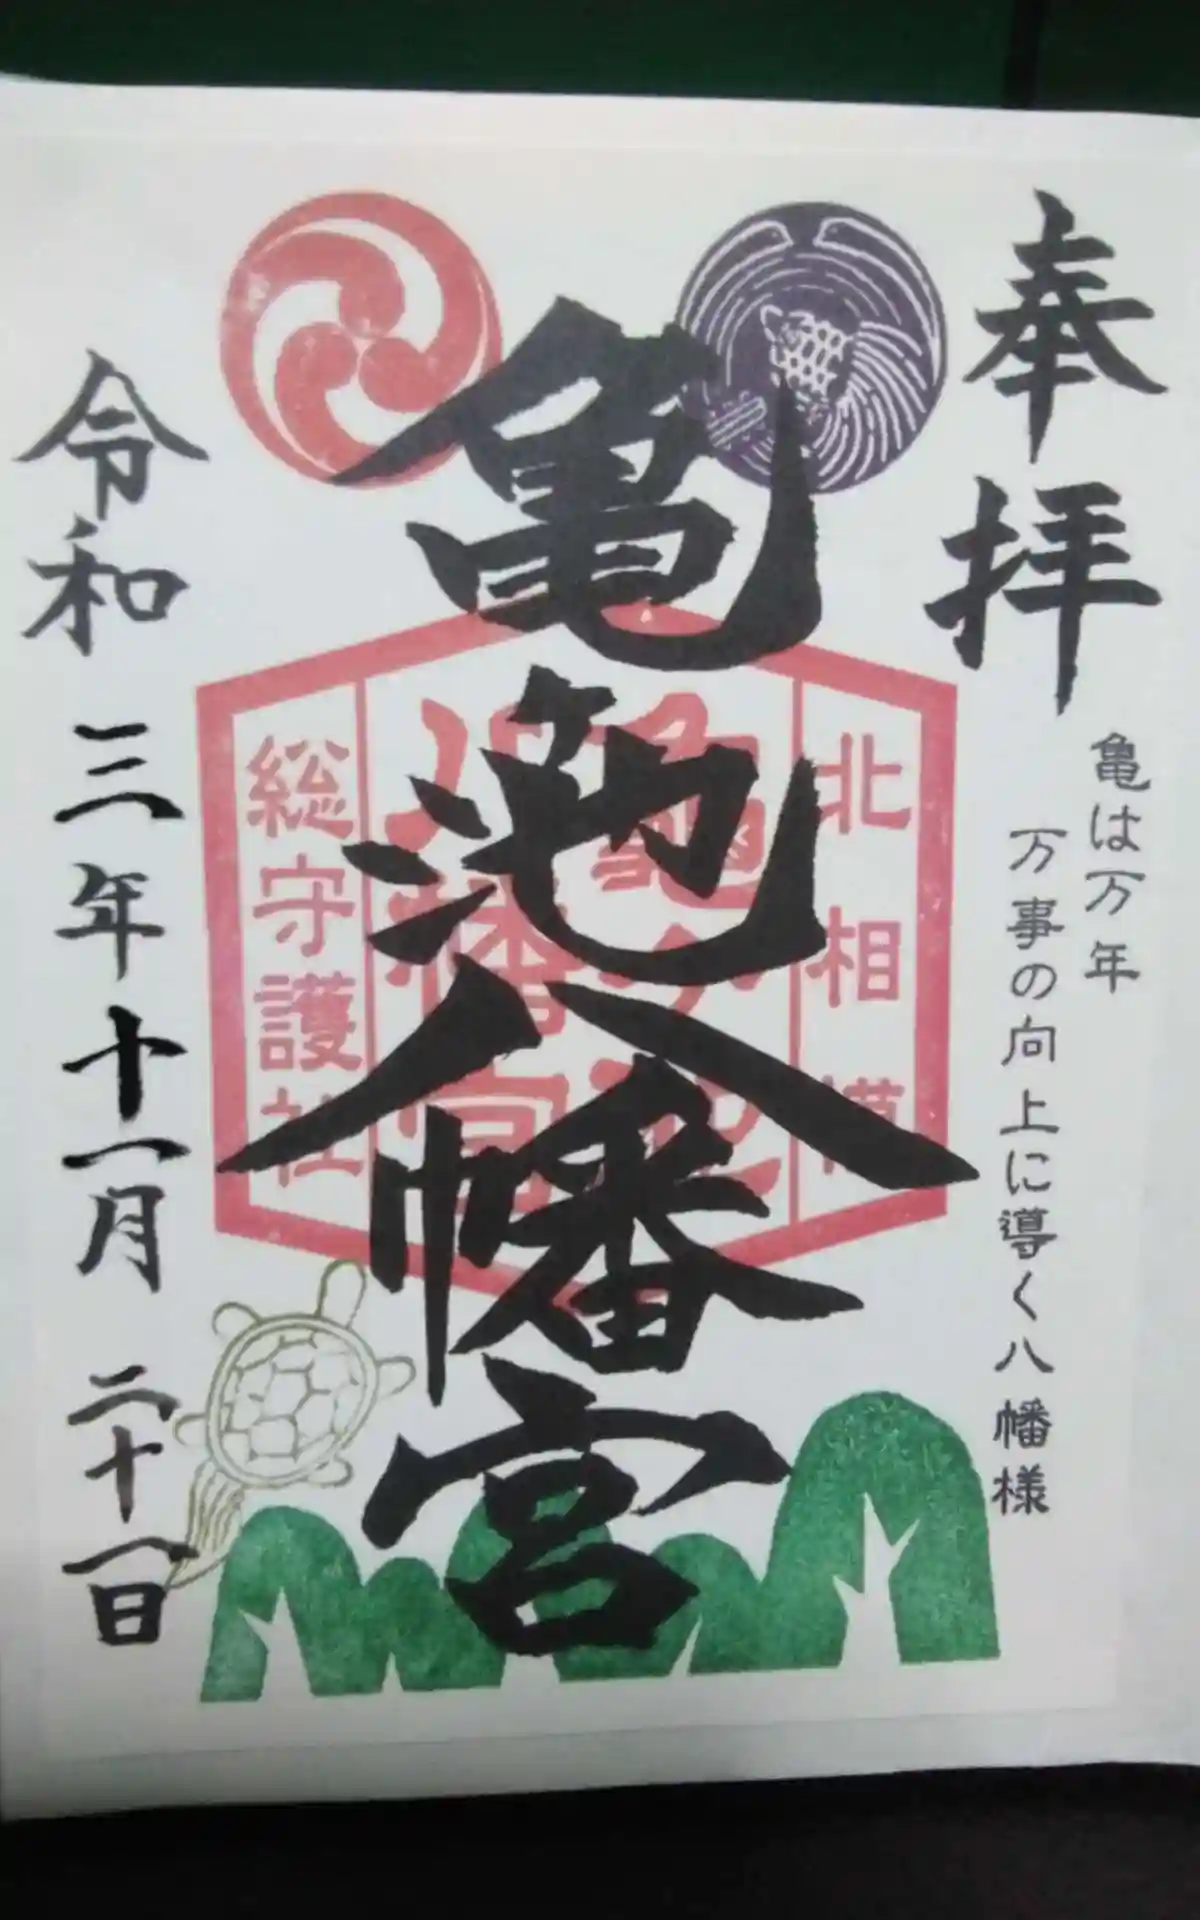 奉拝
亀は万年
万事の向上に導く八幡様
亀池八幡宮
北相模
総守護社
令和三年十一月二十一日